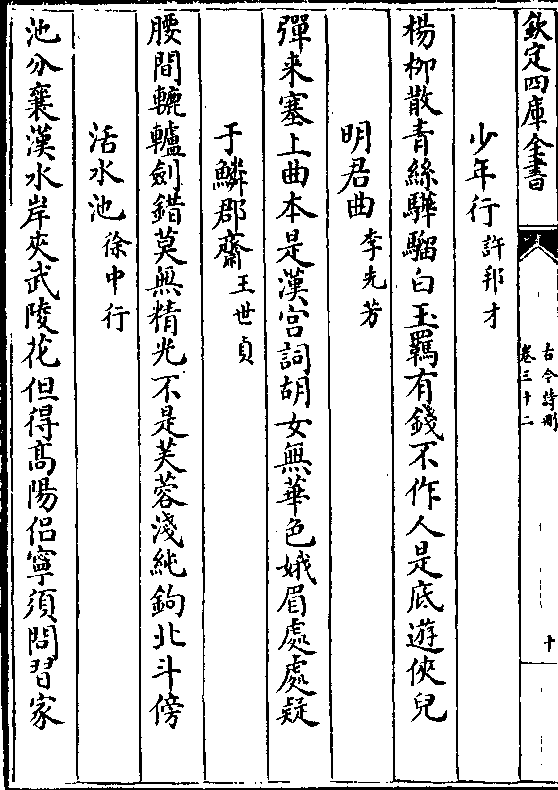 欽定四庫全書
古今詩刪
卷三十二
十
少年行許邦才
楊柳散青絲驊騮白玉羈有錢不作人是底遊俠兒
明君曲李先芳
彈来塞上曲本是漢宫詞胡女無華色娥眉處處疑
于鱗郡齋王世貞
腰間轆轤劍錯莫無精光不是芙蓉淺純鈎北斗傍
活水池徐中行
池分襄漢水岸夾武陵花但得髙陽侣寧須問習家